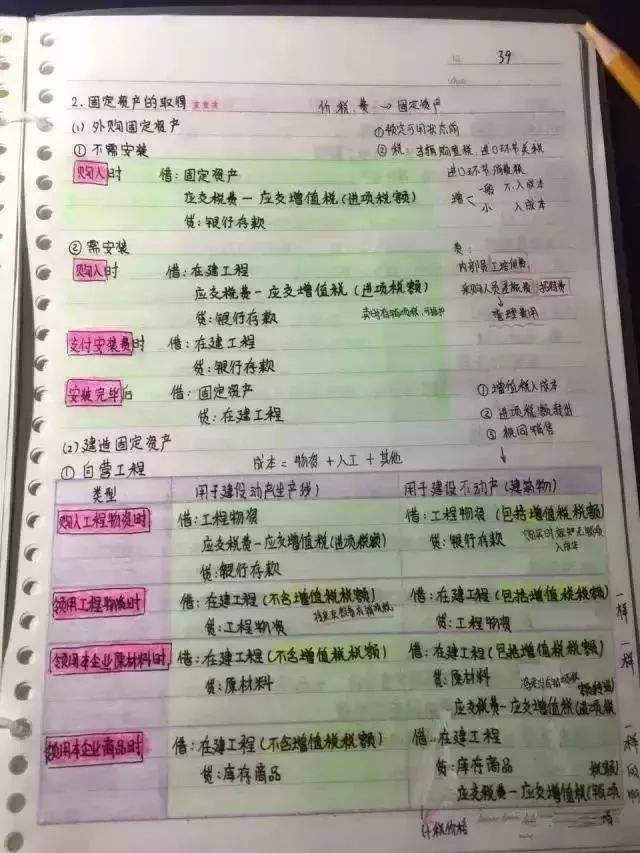 39
2.固定资产的取得 ★★★ 价、税、费 → 固定资产
(1) 外购固定资产 ①预定可用状态前
① 不需安装 ②税：车辆购置税、进口环节关税
购入时 借：固定资产 进口环节消费税
应交税费－应交增值税(进项税额) 增< 一般 不入成本
贷：银行存款 小 入成本
② 需安装 费：
购入时 借：在建工程 内部员工培训费、
应交税费－应交增值税(进项税额) 采购人员差旅费、招待费
贷：银行存款 ↓ 管理费用
支付安装费时 借：在建工程
贷：银行存款
安装完毕后 借：固定资产 ①增值税入成本
贷：在建工程 ②进项税额转出
(2) 建造固定资产 ③视同销售
① 自营工程 成本＝物资＋人工＋其他 ↓
类型 用于建设动产(生产线) 用于建设不动产(建筑物)
购入工程物资时 借：工程物资 借：工程物资(包括增值税税额)
应交税费－应交增值税(进项税额) 贷：银行存款
贷：银行存款 入成本
领用工程物资时 借：在建工程(不含增值税税额) 借：在建工程(包括增值税税额)
贷：工程物资 贷：工程物资
领用本企业原材料时 借：在建工程(不含增值税税额) 借：在建工程(包括增值税税额)
贷：原材料 贷：原材料
应交税费－应交增值税(进项税额转出)
领用本企业商品时 借：在建工程(不含增值税税额) 借：在建工程
贷：库存商品 贷：库存商品
应交税费－应交增值税(销项税额)
计税价格